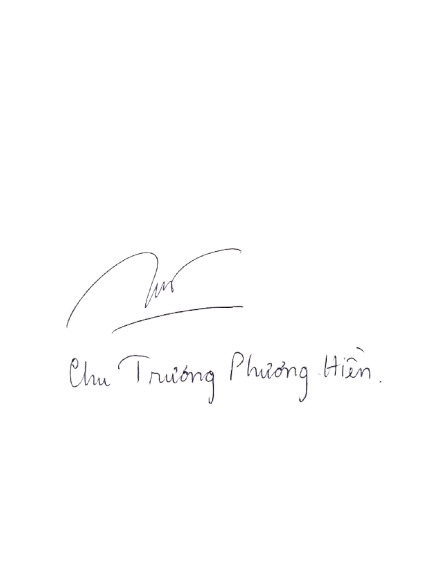 Chu Trương Phương Hiền.